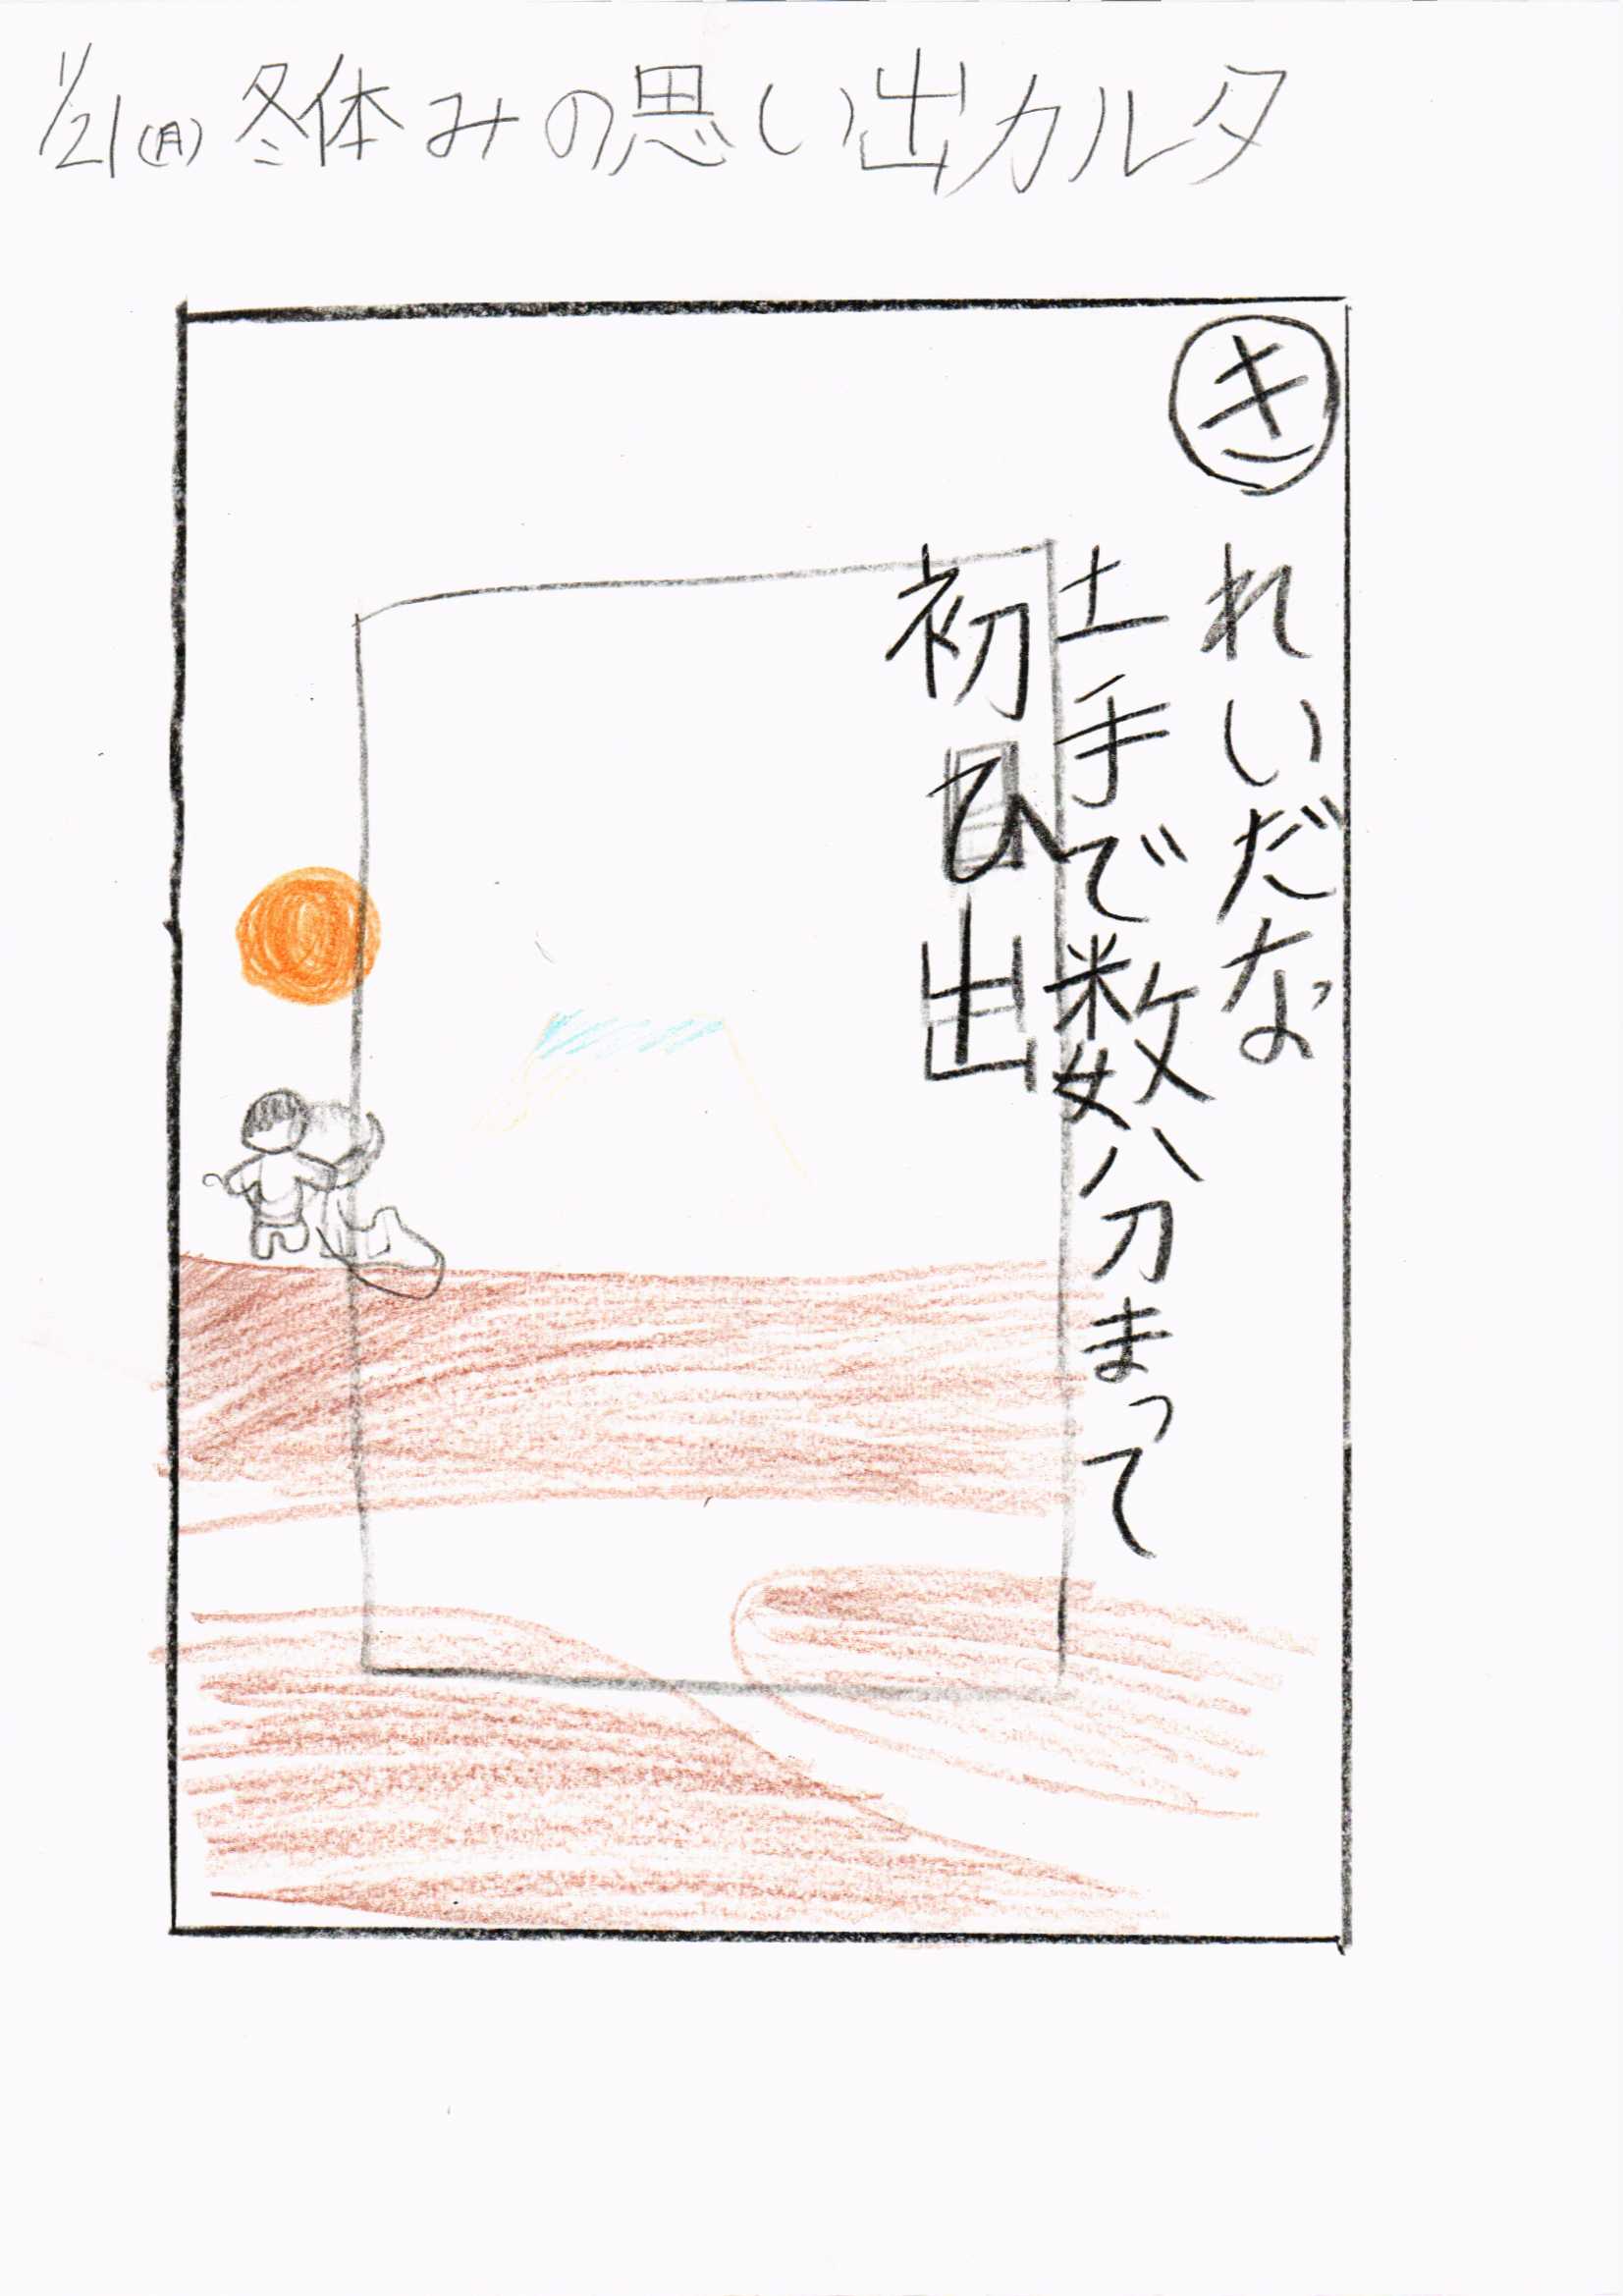 1/21(月)冬体みの思い出カルタ
き
れいだな
土手で数分まって
初ひ出